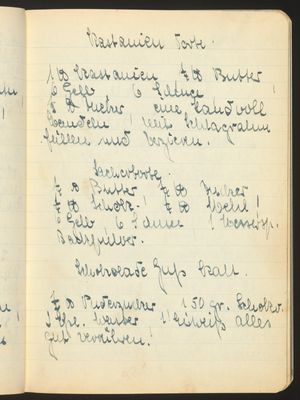 Kastanien Torte.
1 ℔ Kastanien ½ ℔ Butter
6 Gelb 6 Schnee
½ ℔ Zucker eine Handvoll
Mandeln! mit Schlagrahm
füllen und verzieren.
Sachertorte.
¼ ℔ Butter ¼ ℔ Zucker
¼ ℔ Schok.! ¼ ℔ Mehl!
6 Gelb 6 Schnee 1 Messersp.
Backpulver.
Schokolade Guß kalt.
¼ ℔ Puderzucker 150 gr. Schokol.
3 Wasser 1 Eiweiß alles
gut verrühren!